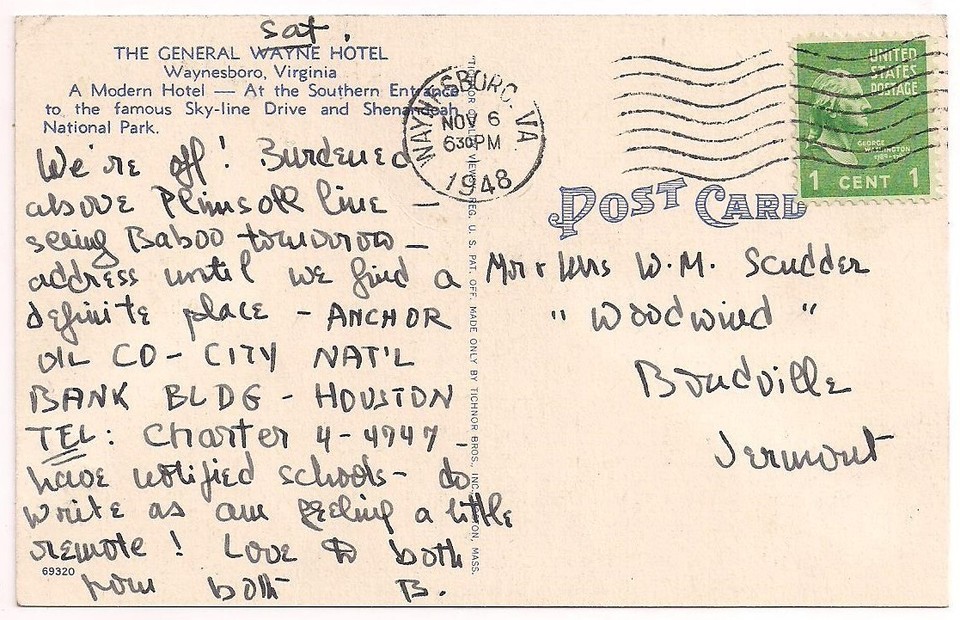 Sat.
THE GENERAL WAYNE HOTEL
Waynesboro, Virginia
A Modern Hotel — At the Southern Entrance
to the famous Sky-line Drive and Shenandoah
National Park.
We're off! Burdened
above Plimsoll line —
seeing Baboo tomorrow —
address until we find a
definite place - ANCHOR
OIL CO - CITY NAT'L
BANK BLDG - HOUSTON
TEL: Charter 4-4947 -
have notified schools - do
write as am feeling a little
remote! Love to both
from both B.
69320
WAYNESBORO, VA
NOV 6
630PM
1948
REG. U. S. PAT. OFF. MADE ONLY BY TICHNOR BROS., INC., BOSTON, MASS.
UNITED
STATES
POSTAGE
GEORGE
WASHINGTON
1789-1797
1 CENT 1
POST CARD
Mr & Mrs W.M. Scudder
"Woodwind"
Bondville
Vermont